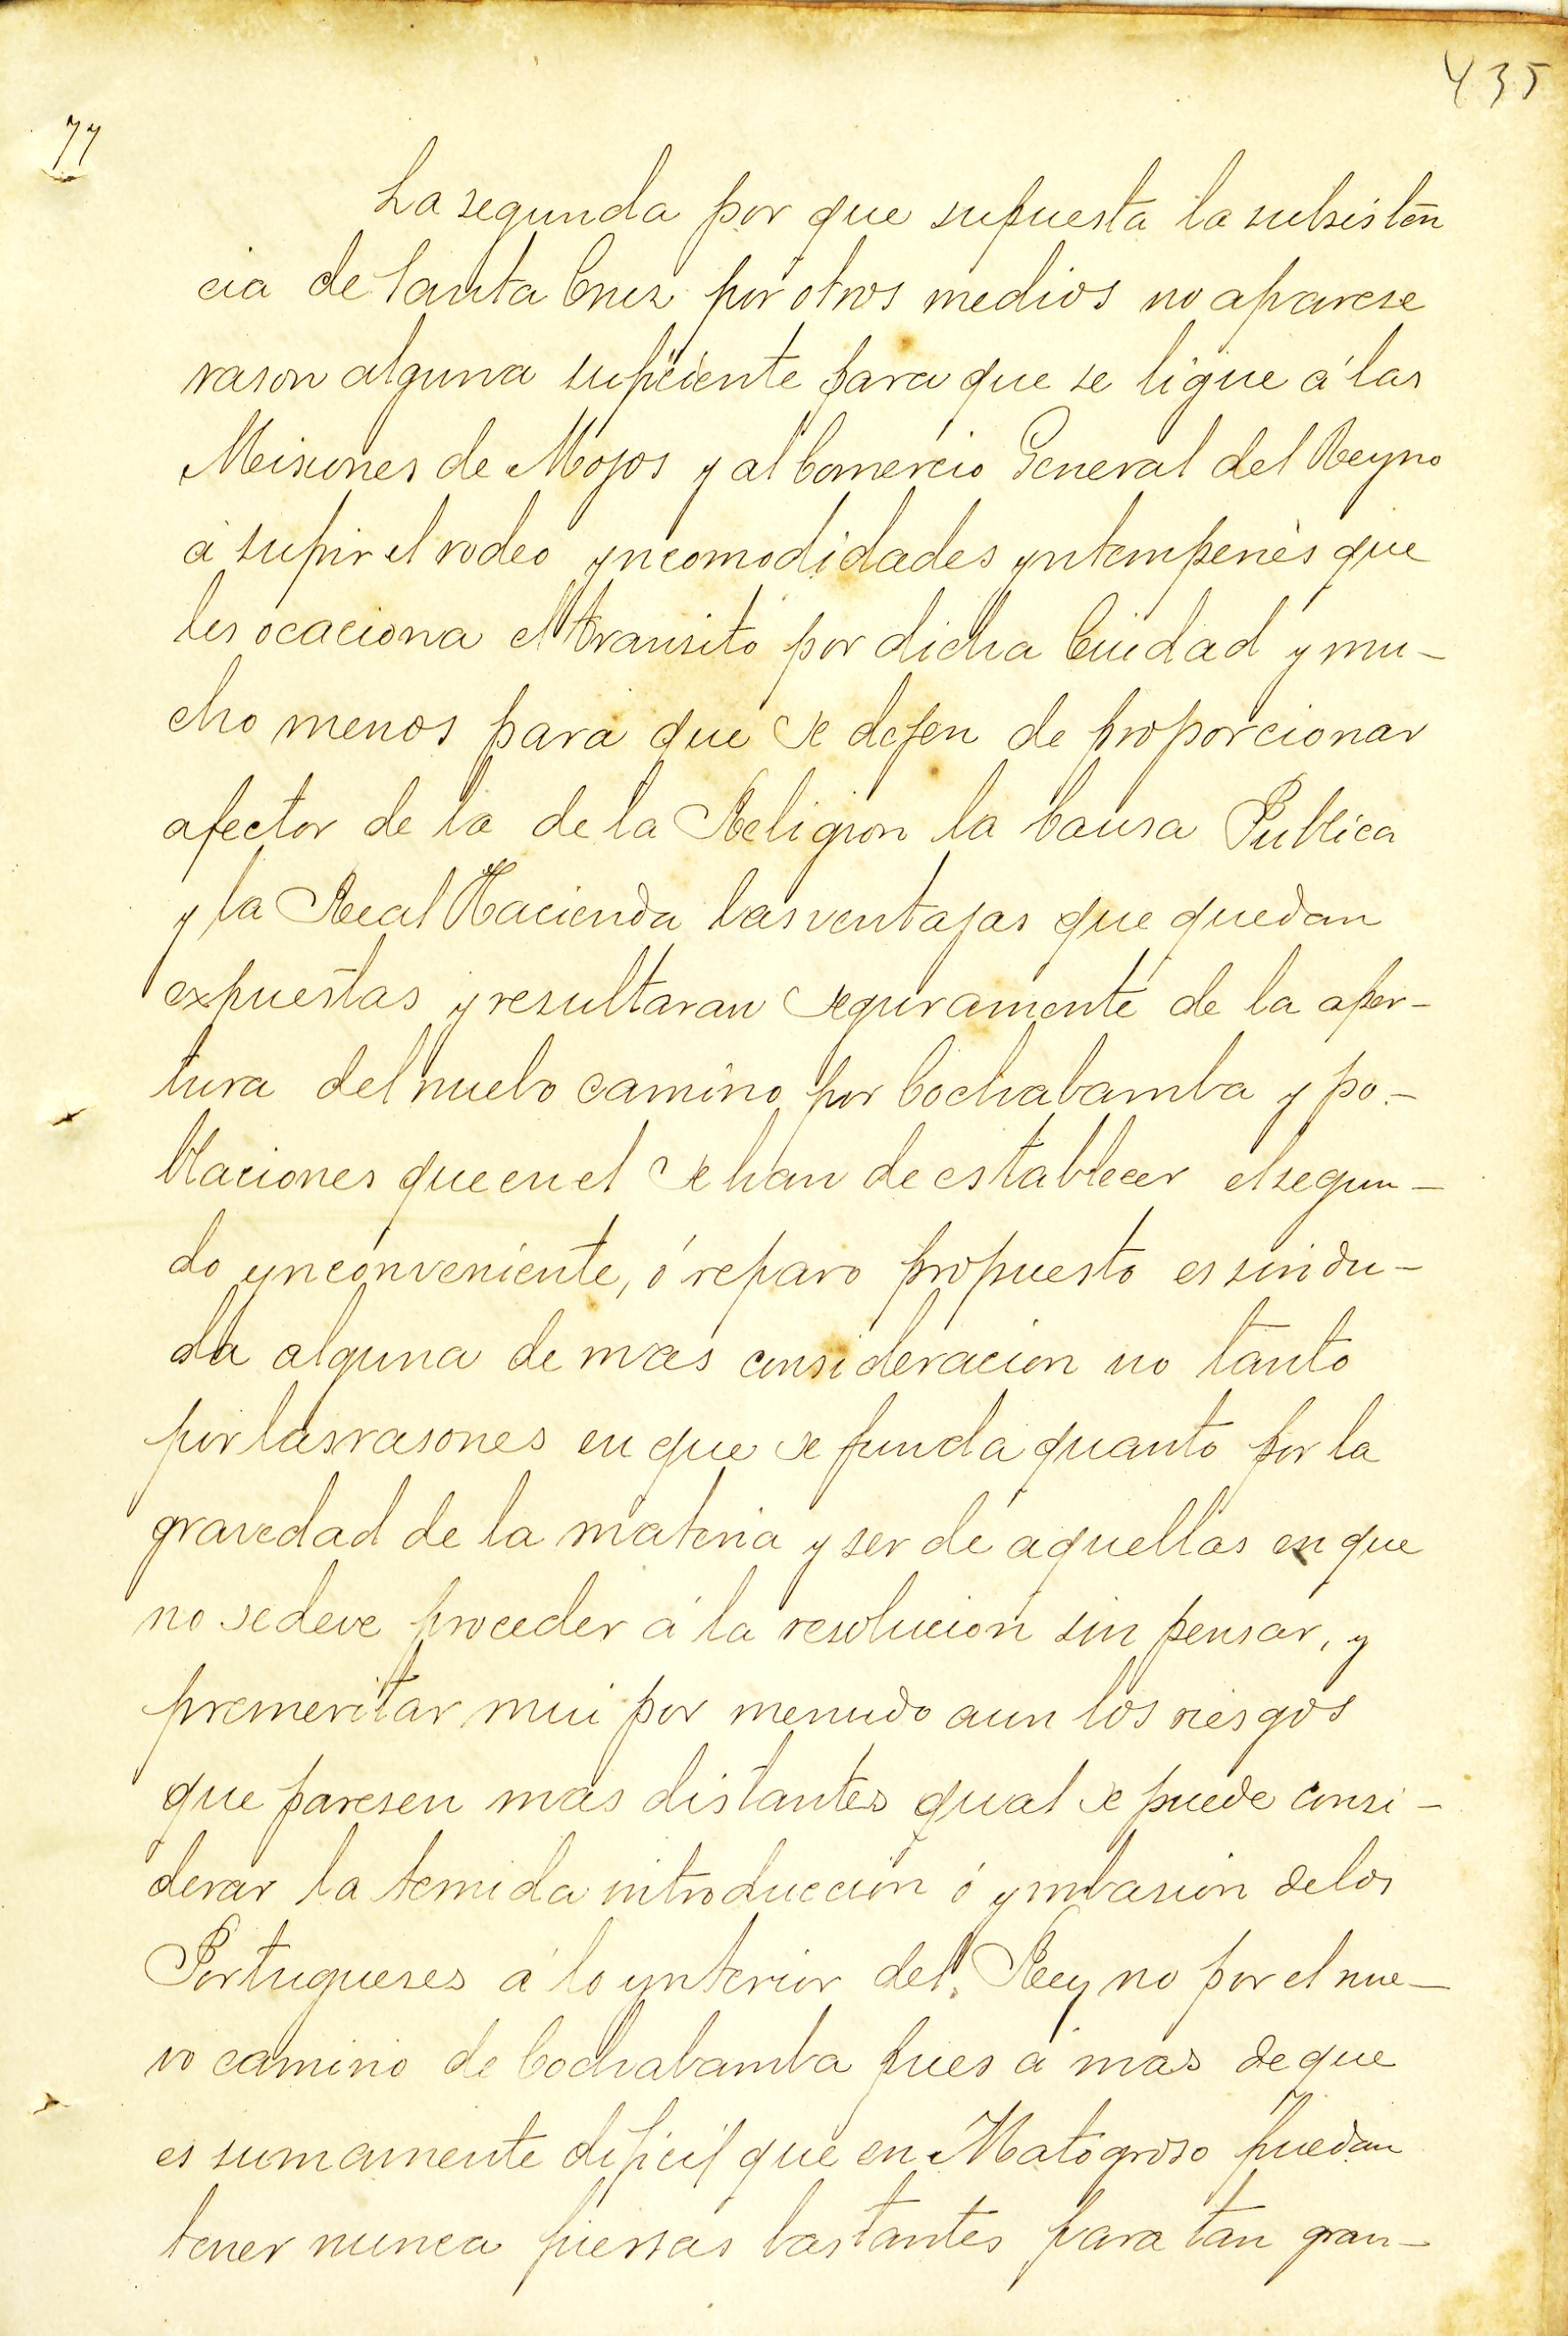 435
77
La segunda por que supuesta la subsistēn
cia de Santa Cruz por otros medios no aparese
rason alguna suficiente para que se ligue á las
Meisiones de Mojos y al Comercio General del Reyno
á sufrir el rodeo yncomodidades yntemperies que
les ocaciona el transito por dicha Ciudad y mu-
cho menos para que se dejen de proporcionar
afector de la de la Religion la Causa Publica
y la Real Hacienda las ventajas que quedan
expuestas y resultaran seguramente de la aper-
tura del nuebo camino por Cochabamba y po-
blaciones que en el se han de establecer el segun-
do ynconveniente, ó reparo propuesto es sin du-
da alguna de mas consideracion no tanto
por las rasones en que se funda quanto por la
gravedad de la materia y ser de aquellas en que
no se deve proceder á la resolucion sin pensar, y
premeritar mui por menudo aun los riesgos
que paresen mas distantes qual se puede consi-
derar la temida introduccion ó ymbasion de los
Portugueses á lo ynterior del Reyno por el nue-
vo camino de Cochabamba pues á mas de que
es sumamente dificil que en Matogroso puedan
tener nunca fuersas bastantes para tan gran-